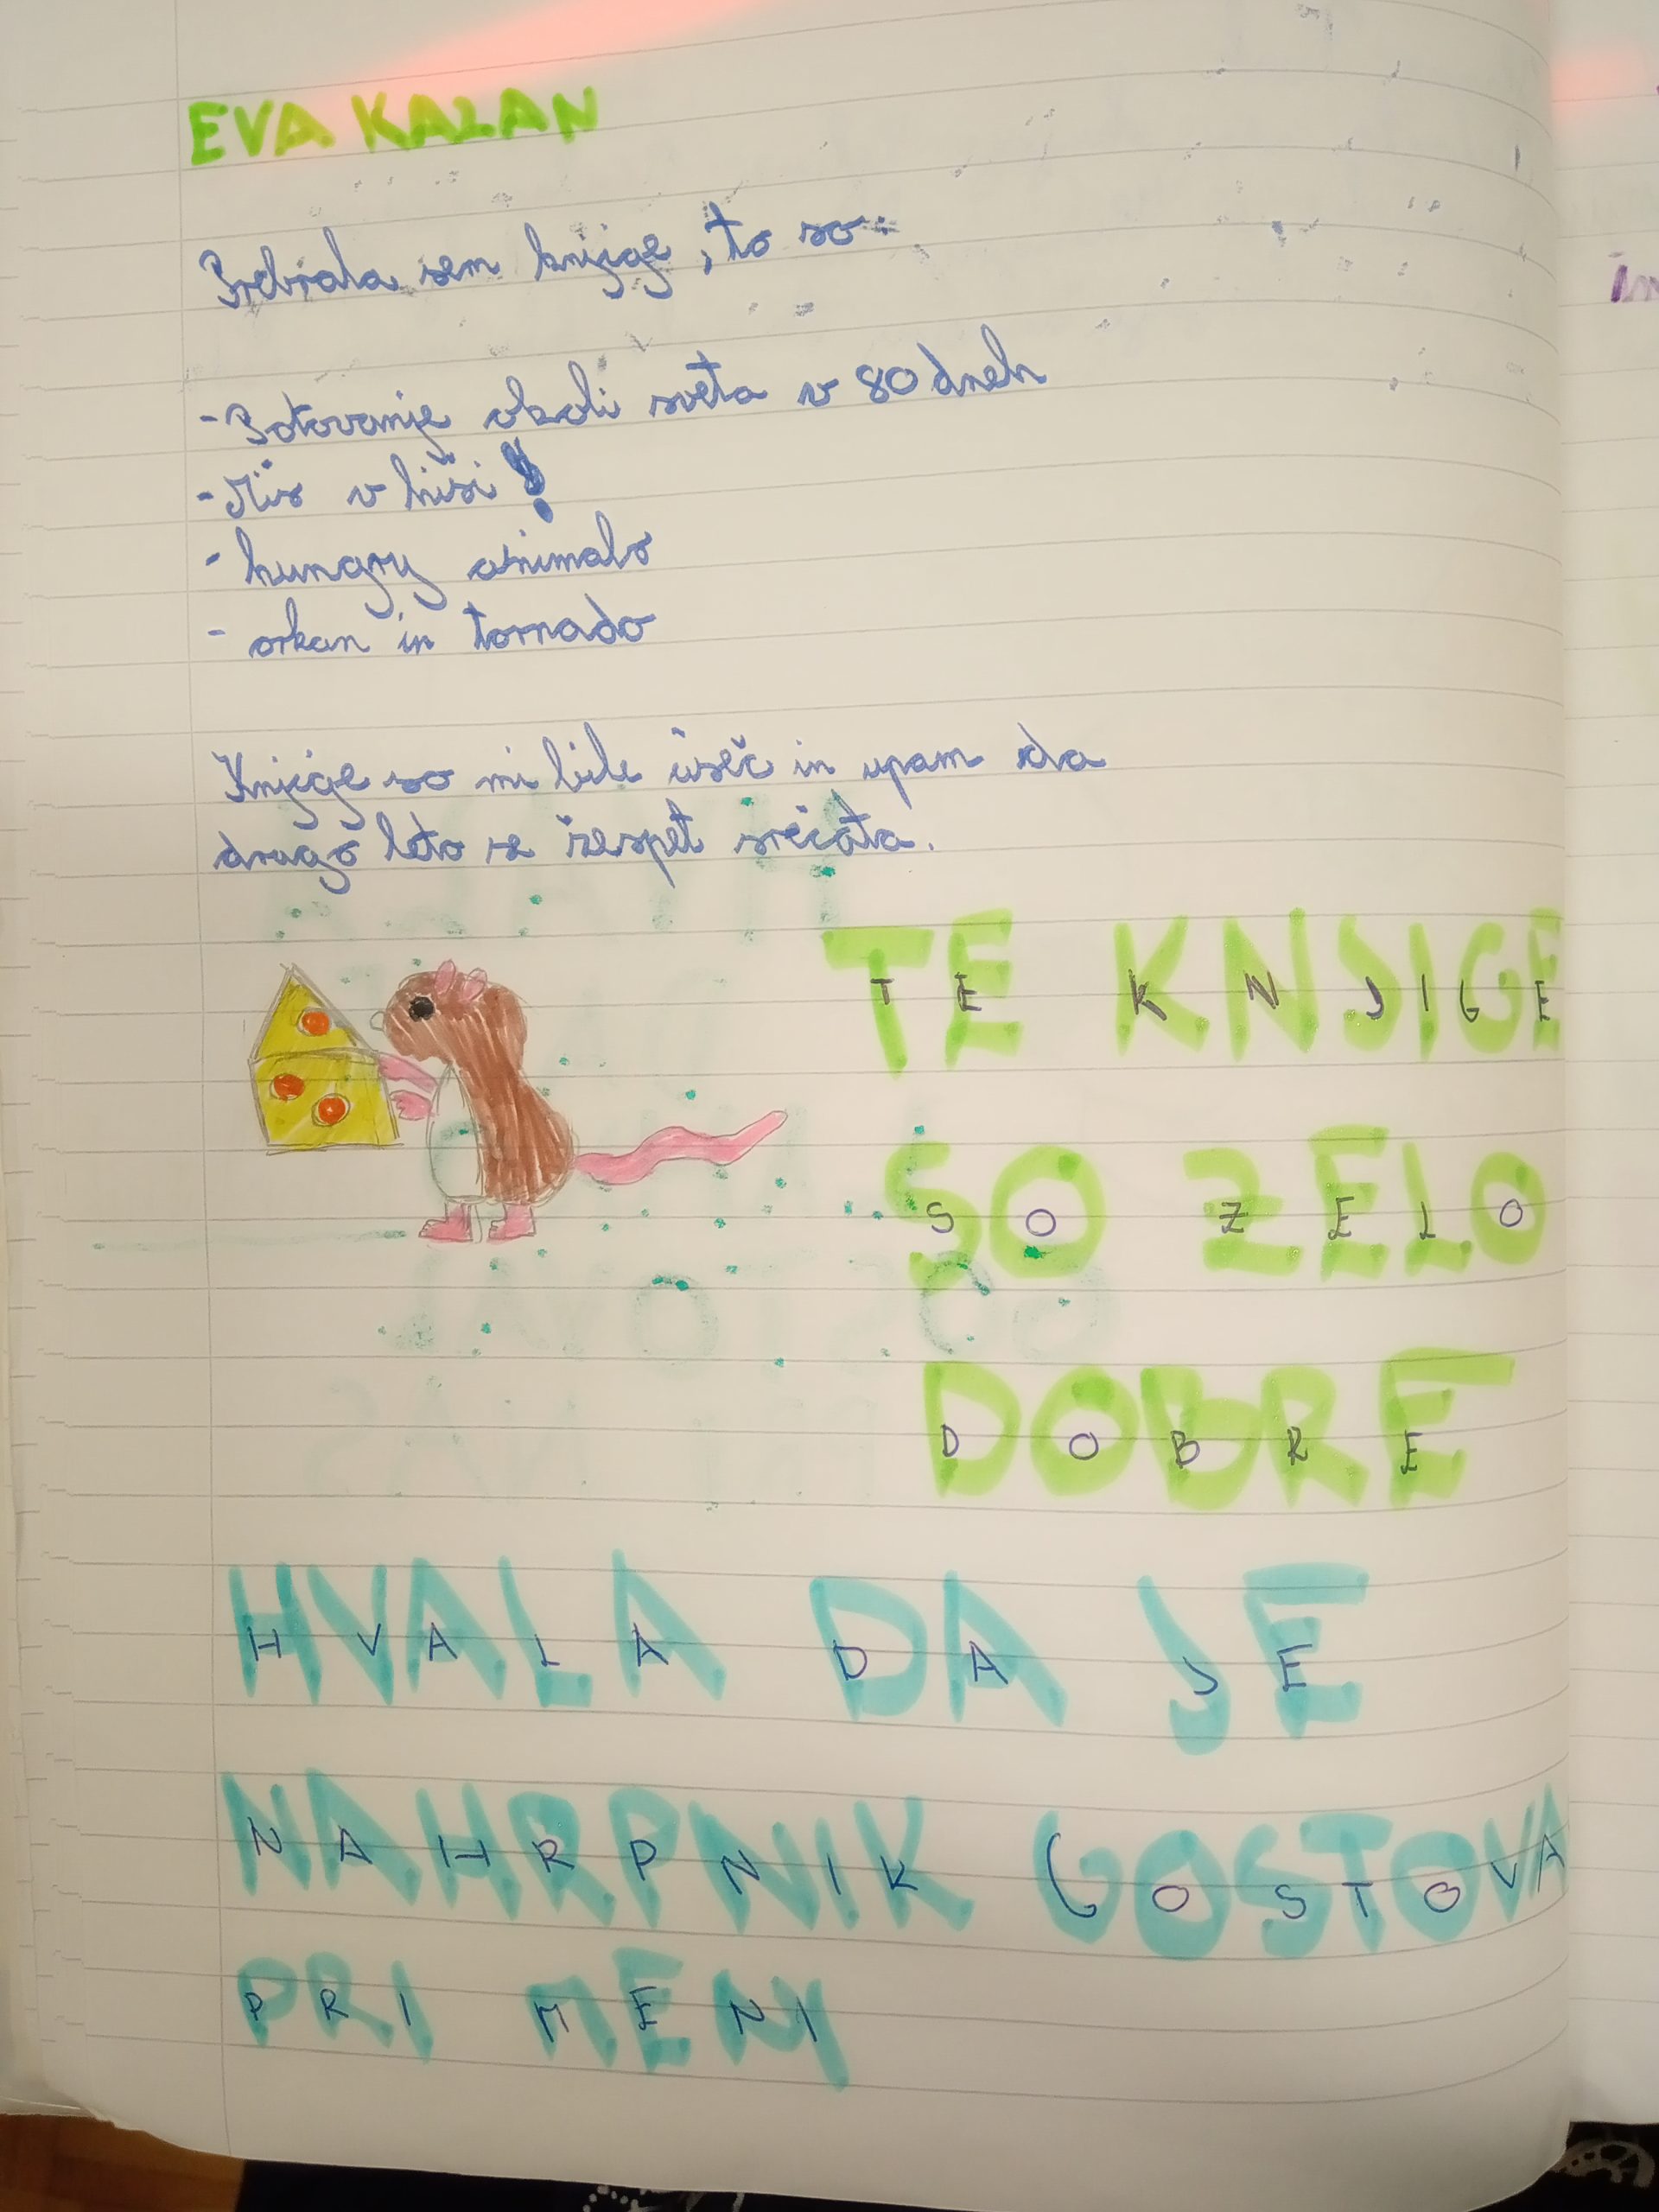 EVA KALAN
Prebrala sem knjige, to so:
- Potovanje okoli sveta v 80 dneh
- Miš v hiši!
- hungry animals
- orkan in tornado
Knjige so mi bile všeč in upam da
drugo leto se žespet srečata.
TE KNJIGE
SO ZELO
DOBRE
HVALA DA JE
NAHRPNIK GOSTOVA
PRI MENI